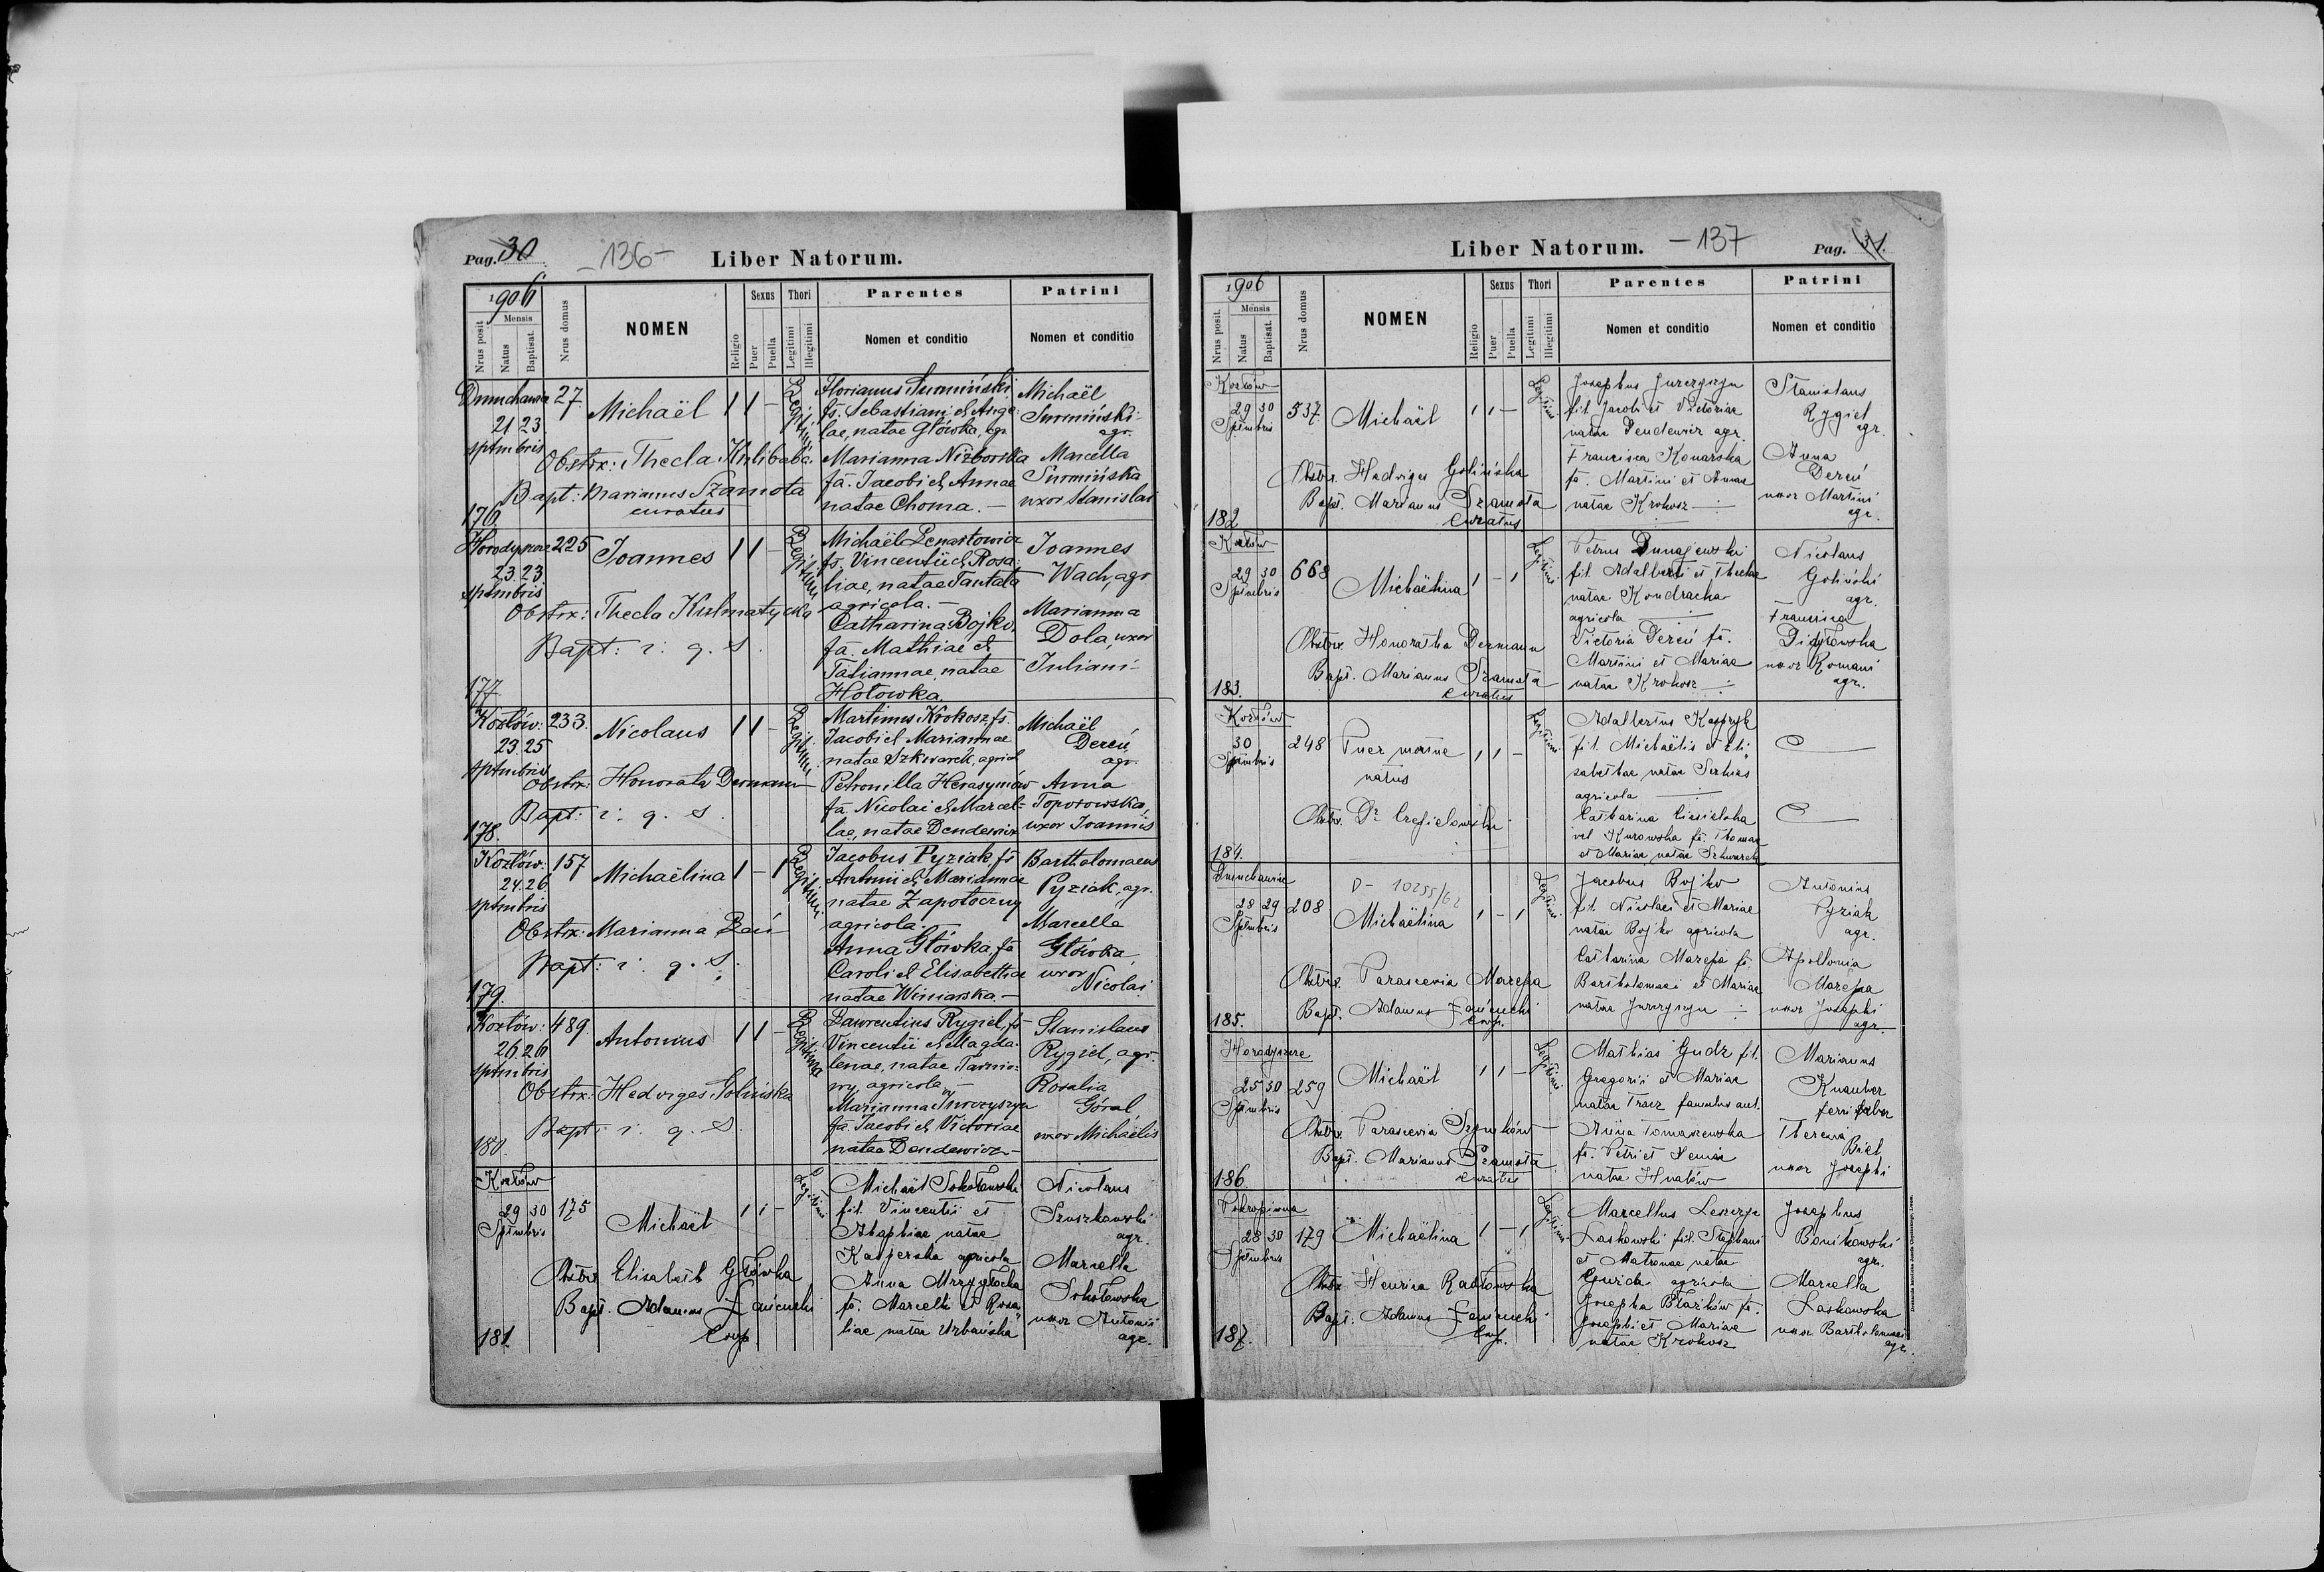 Pag. 30
- 136 -
Liber Natorum.
1906
Nrus posit.
Mensis
Natus
Baptisat.
Nrus domus
NOMEN
Religio
Sexus
Puer
Puella
Thori
Legitimi
Illegitimi
Parentes
Nomen et conditio
Patrini
Nomen et conditio
27
Michaël
1 1 -
Legitimi
21 23
sptmbris
Obstrx: Thecla Kulibaba
Bapt: Marianus Szamota
curatus
176
Florianus Surmiński,
fs. Sebastiani et Ange-
lae, natae Główka, agr.
Marianna Niżborska
fa. Jacobi et Annae
natae Choma. -
Michaël
Surmiński
agr.
Marcella
Surmińska
uxor Stanislai
225
Joannes
1 1 -
Legitimi
23. 23
sptmbris
Obstrx: Thecla Kulmatycka
Bapt: i. q. s.
177
Michaël Lenartowicz
fs. Vincentii et Rosa-
liae, natae Tantata
agricola. -
Catharina Bojko,
fa. Mathiae et
Tatiannae, natae
Hołowka.
Joannes
Wach, agr.
Marianna
Dola, uxor
Juliani
Kozłów:
233.
Nicolaus
1 1 -
Legitimi
23. 25
sptmbris
Obstrx: Honorata Dermann
Bapt: i. q. s.
178.
Martinus Krokosz, fs.
Jacobi et Mariannae
natae Szkwarek, agricol
Petronilla Herasymów
fa. Nicolai et Marcel-
lae, natae Dendewicz
Michaël
Dereń,
agr.
Anna
Toporowska,
uxor Joannis
Kozłów:
157
Michaëlina
1 - 1
Legitimi
24. 26
sptmbris
Obstrx: Marianna Bań
Bapt: i. q. s.
179.
Jacobus Pyziak, fs
Antonii et Mariannae
natae Zapotoczny
agricola. -
Anna Główka, fa
Caroli et Elisabethae
natae Winiarska. -
Bartholomaeus
Pyziak, agr.
Marcella
Główka,
uxor
Nicolai
Kozłów:
489.
Antonius
1 1 -
Legitimi
26. 26
sptmbris
Obstrx: Hedviges Golińska
Bapt: i. q. s.
180.
Laurentius Rygiel, fs
Vincentii et Magda-
lenae, natae
agricola. -
Marianna Jurczyszyn
fa. Jacobi et Victoriae
natae Dendewicz -
Stanislaus
Rygiel, agr.
Rosalia
Góral,
uxor Michaëlis
Kozłów
29 30
Sptmbris
175
Michaël
1 1 -
Legitimi
Obstrx. Elisabeth Główka
Bapt. Adamus Łańcucki
Coop
181.
Michaël Sokołowski
fil. Vincentii et
Ahaphiae natae
agricola
Anna Mrzygłocka
fa. Marcelli et Rosa-
liae natae Urbańska
Nicolaus
Szuszkowski
agr.
Marcella
Sokołowska
uxor Antonii
agr.
Liber Natorum.
- 137
Pag. 31.
1906
Nrus posit.
Mensis
Natus
Baptisat.
Nrus domus
NOMEN
Religio
Sexus
Puer
Puella
Thori
Legitimi
Illegitimi
Parentes
Nomen et conditio
Patrini
Nomen et conditio
Kozłów
29 30
Sptmbris
537
Michaël
1 1 -
Legitimi
Obstrx. Hedviges Golińska
Bapt. Marianus Szamota
Curatus
182
Josephus Jurczyszyn
fil. Jacobi et Victoriae
natae Dendewicz agr.
Francisca Konarska
fa. Martini et Annae
natae Krokosz
Stanislaus
Rygiel
agr.
Anna
Dereń
uxor Martini
agr.
Kozłów
29 30
Sptmbris
668
Michaëlina
1 - 1
Legitimi
Obstrx. Honoratha Dermann
Bapt. Marianus Szamota
Curatus
183.
Petrus Dunajewski
fil. Adalberti et Theclae
natae Kondracka
agricola
Victoria Dereń fa.
Martini et Mariae
natae Krokosz
Nicolaus
Goliński
agr.
Francisca
Didyłowska
uxor Romani
agr.
Kozłów
30
Sptmbris
248
Puer mortue
natus
1 1 -
Legitimi
Obstrx. Dr
184.
Adalbertus Kasprzyk
fil. Michaëlis et Eli-
sabethae natae
agricola
Catharina
vel Kurowska fa. Thomae
et Mariae natae Szkwarek
208
D - 10255/62
Michaëlina
1 - 1
Legitimi
28 29
Sptmbris
Obstrx. Parascevia Mazepa
Bapt. Adamus Łańcucki
Coop.
185.
Jacobus Bojko
fil. Nicolai et Mariae
natae Bojko agricola
Catharina Mazepa fa.
Bartholomaei et Mariae
natae Jurczyszyn
Antonius
Pyziak
agr.
Apollonia
Mazepa
uxor Josephi
agr.
Horodyszcze
25 30
Sptmbris
259
Michaël
1 1 -
Legitimi
Obstrx. Parascevia
Bapt. Marianus Szamota
Curatus
186.
Mathias Gudz fil.
Gregorii et Mariae
natae Tracz famulus aul.
Anna Tomaszewska
fa. Petri et
natae Hnatów
Marianus
Knauber
ferri faber
Theresia
Biel
uxor Josephi
Pokropiwna
28 30
Sptmbris
179
Michaëlina
1 - 1
Legitimi
Obstrx. Henrica Radłowska
Bapt. Adamus Łańcucki
Coop.
187.
Marcellus
Laskowski fil. Stephani
et Matronae natae
agricola
Josepha Błażków fa.
Josephi et Mariae
natae Krokosz
Josephus
Bonikowski
agr.
Marcella
Laskowska
uxor Bartholomaei
agr.